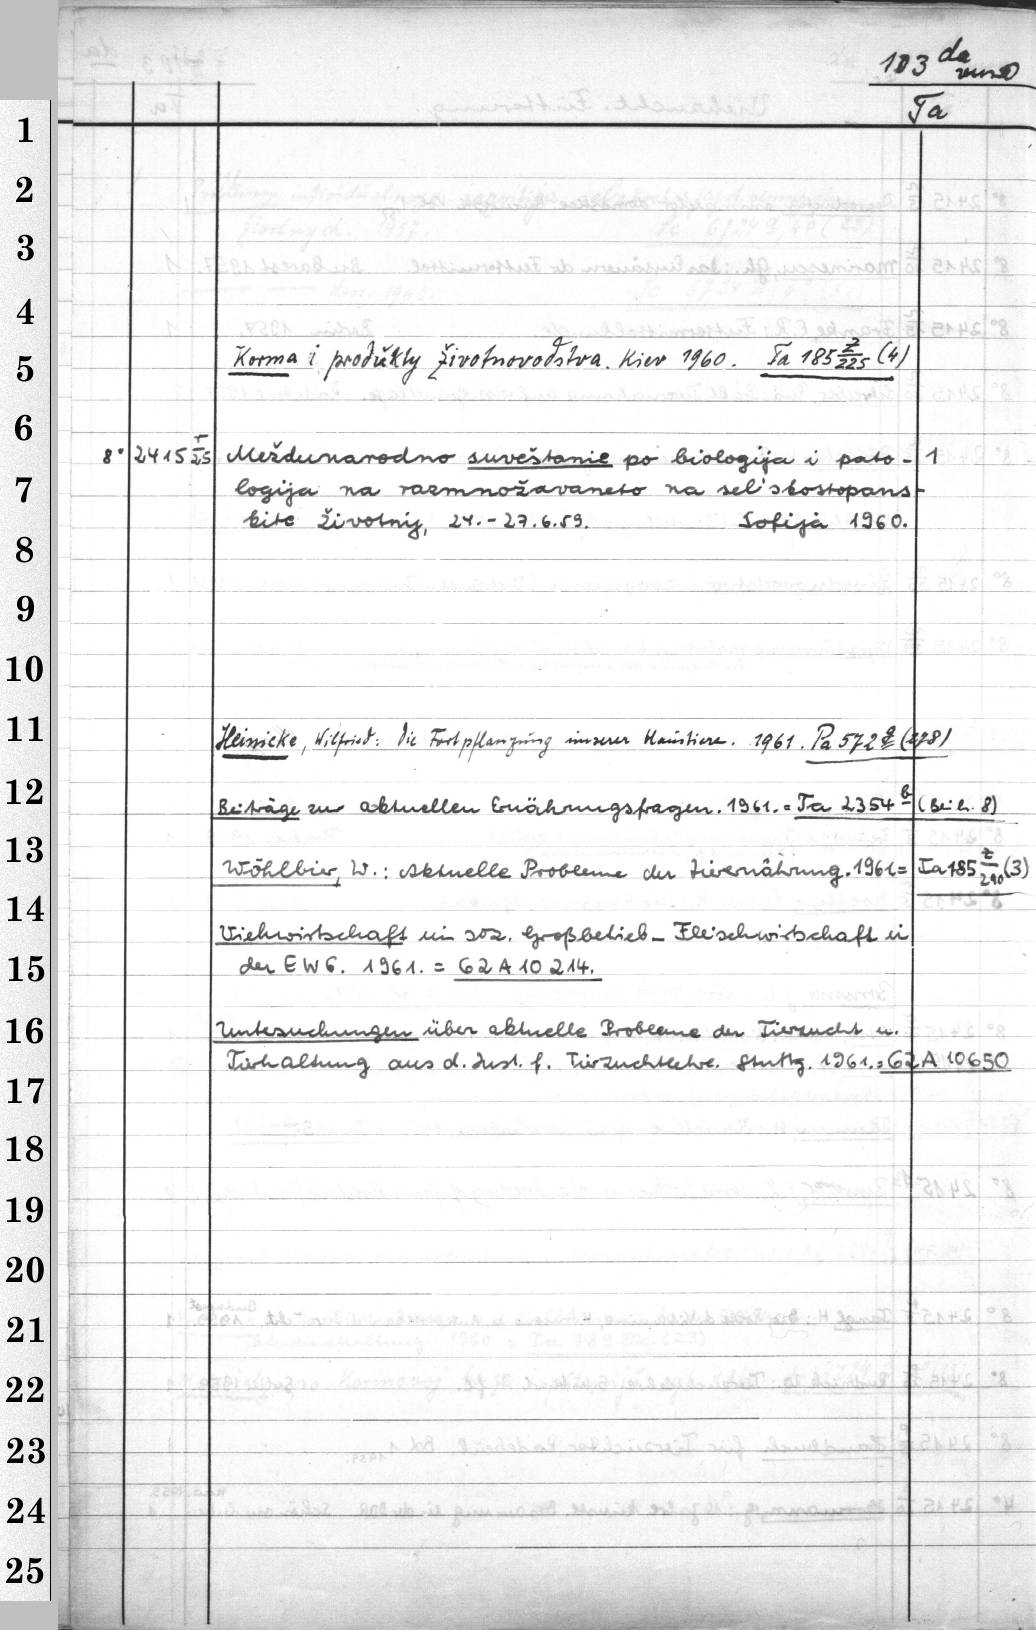 103 da
Ta
1
2
3
4
Korma i produkty životnovodstva. Kiev 1960. Ta 185 Z/225 (4)
5
6
8° 2415 r/25 Meždunarodno suveštanie po biologija i pato- 1
7 logija na razmnožavaneto na sel'skostopans-
kite životnij, 24.-27.6.59. Sofija 1960.
8
9
10
11 Heinicke, Wilfried: Die Fortpflanzung unserer Haustiere. 1961. Pa 572 (278)
12 Beiträge zur aktuellen Ernährungsfragen. 1961. = Ta 2354 b (Beih. 8)
13 Wöhlbier, W.: Aktuelle Probleme der Tierernährung. 1961 = Ta 185 Z/290 (3)
14 Viehwirtschaft im soz. Großbetrieb - Fleischwirtschaft in
15 der EWG. 1961. = 62 A 10 214.
16 Untersuchungen über aktuelle Probleme der Tierzucht u.
Tierhaltung aus d. Inst. f. Tierzuchtlehre. Stuttg. 1961. = 62 A 10650
17
18
19
20
21
22
23
24
25